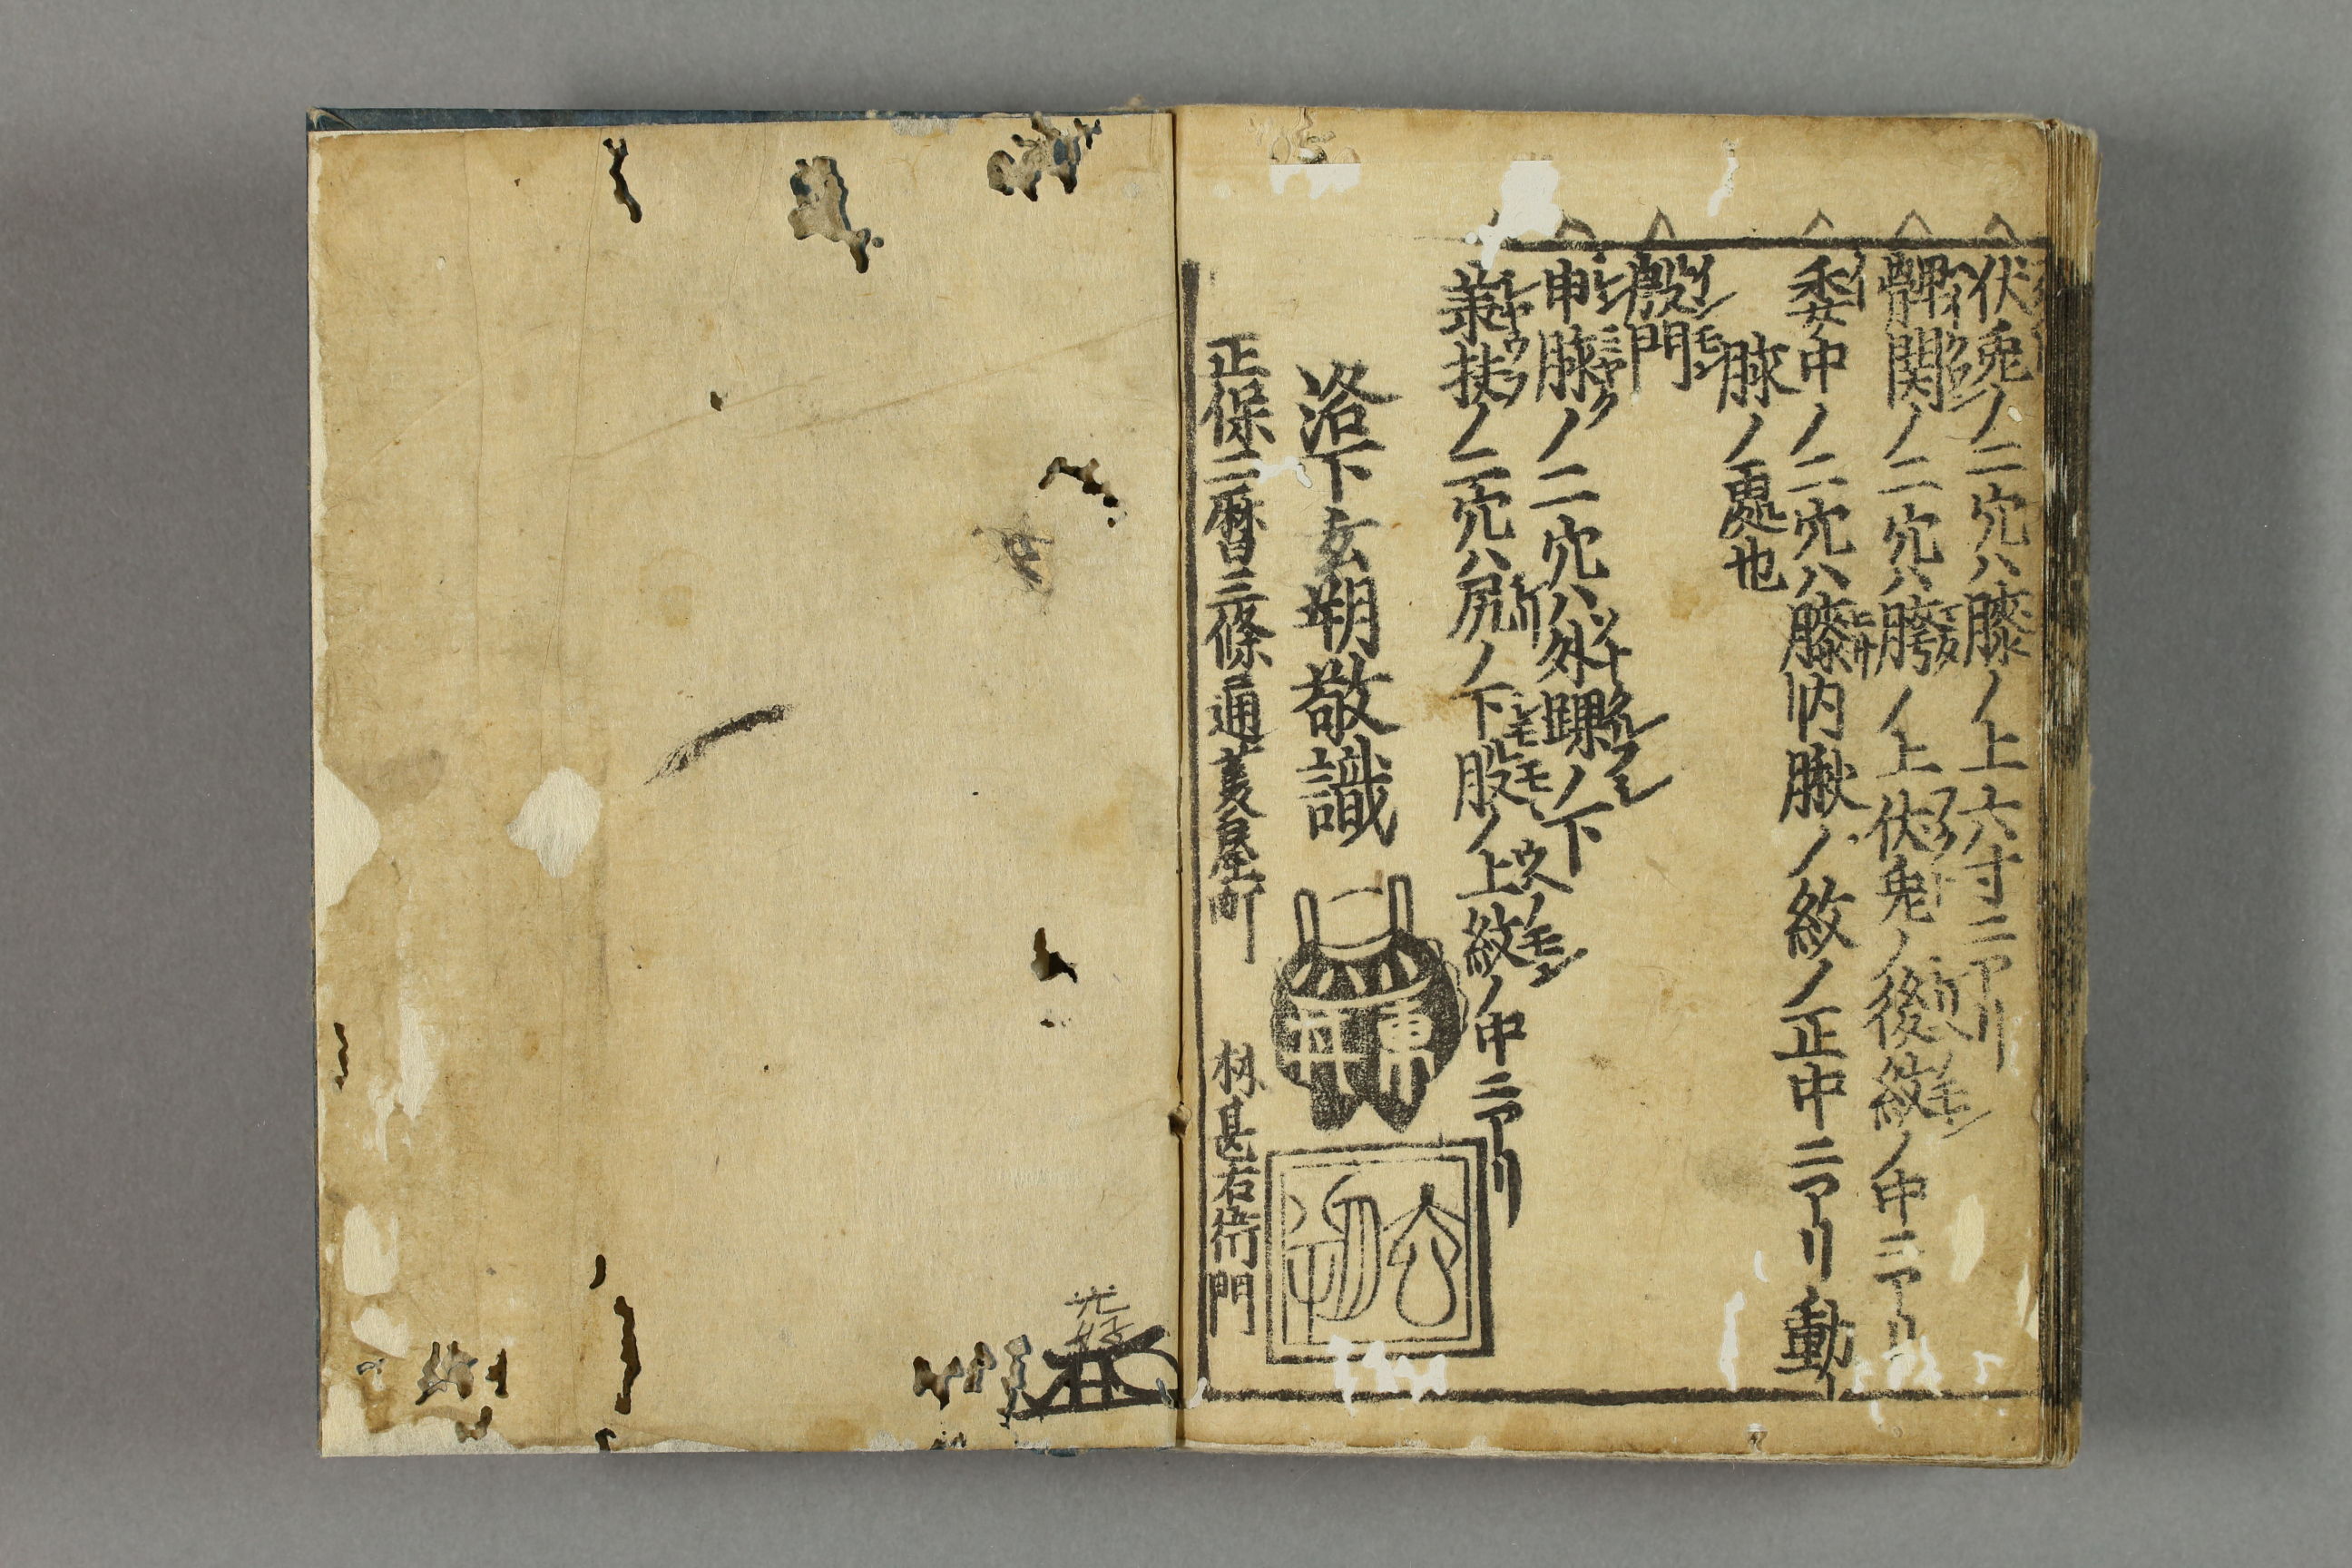 伏兎ノ二穴ハ膝ノ上六寸ニアリ
髀関ノ二穴ハ膝ノ上伏兎ノ後紋ノ中ニアリ
委中ノ二穴ハ膝内膕ノ紋ノ正中ニアリ動
脉ノ処也
殷門
申脉ノ二穴ハ外踝ノ下
兼扶ノ二穴ハ尻ノ下股ノ上紋ノ中ニアリ
洛下玄朔敬識
東井
正保二暦三條通菱屋町 林甚右衛門